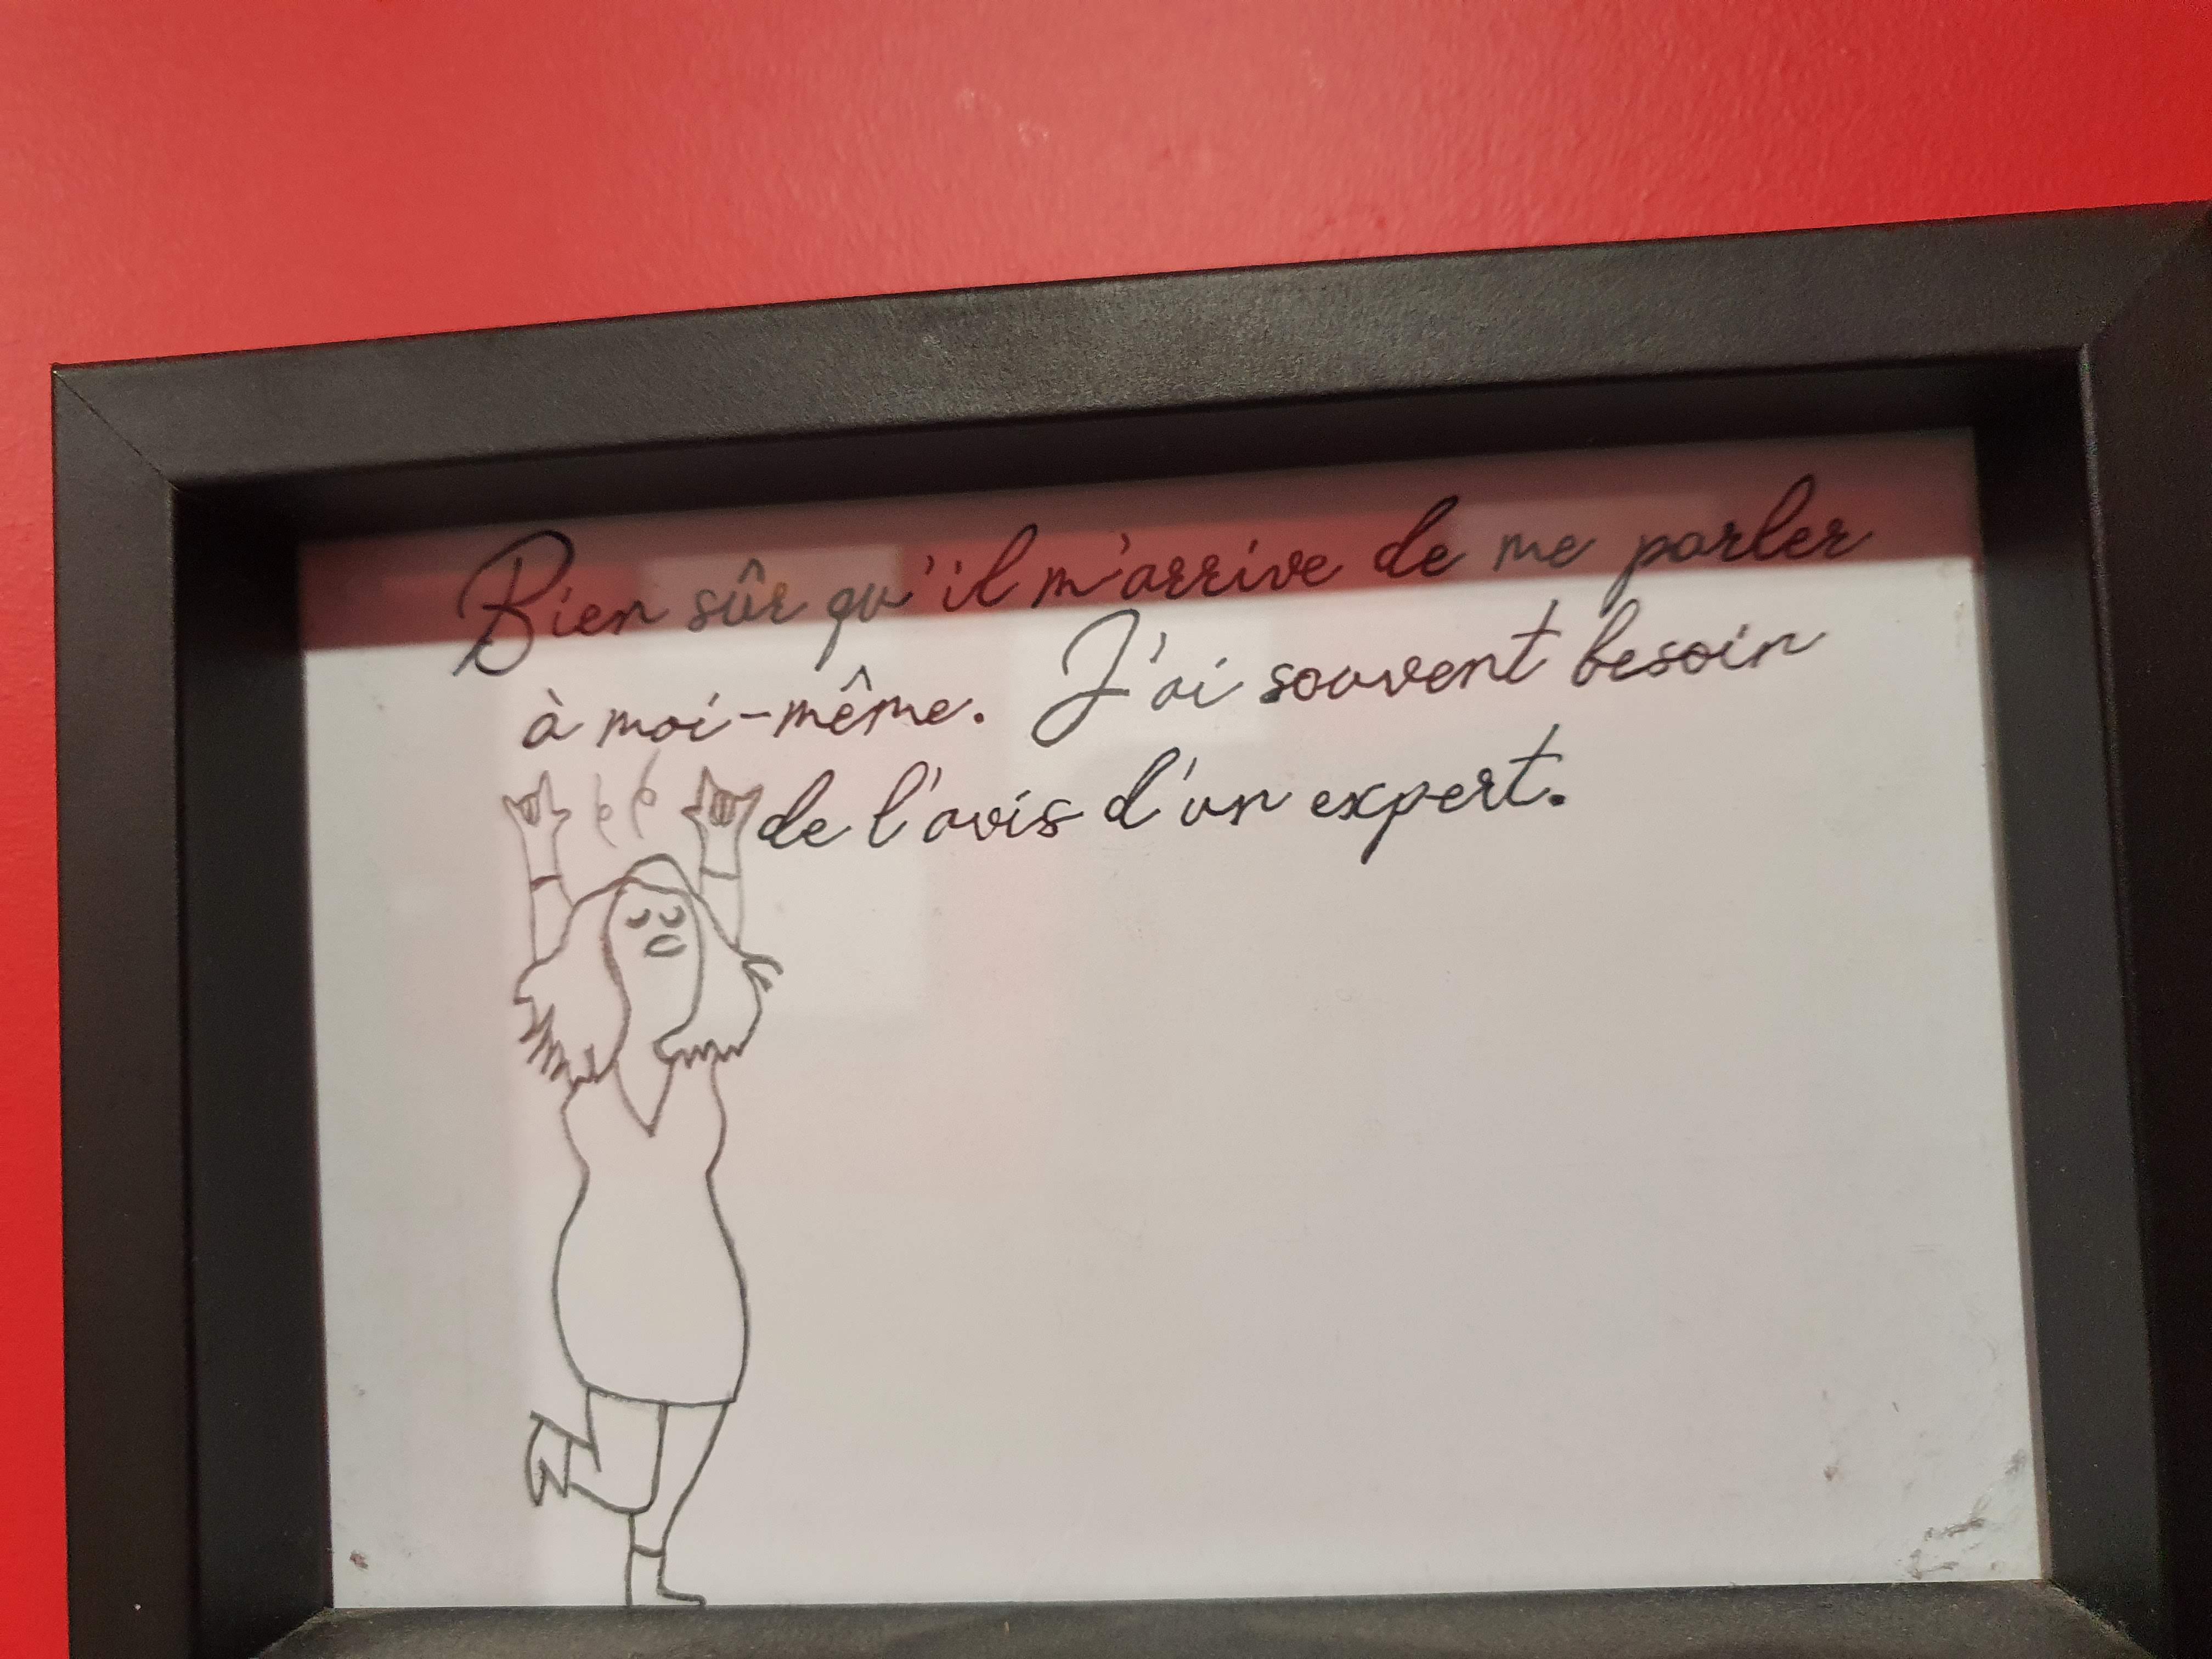 Bien sûr qu'il m'arrive de me parler
à moi-même. J'ai souvent besoin
de l'avis d'un expert.